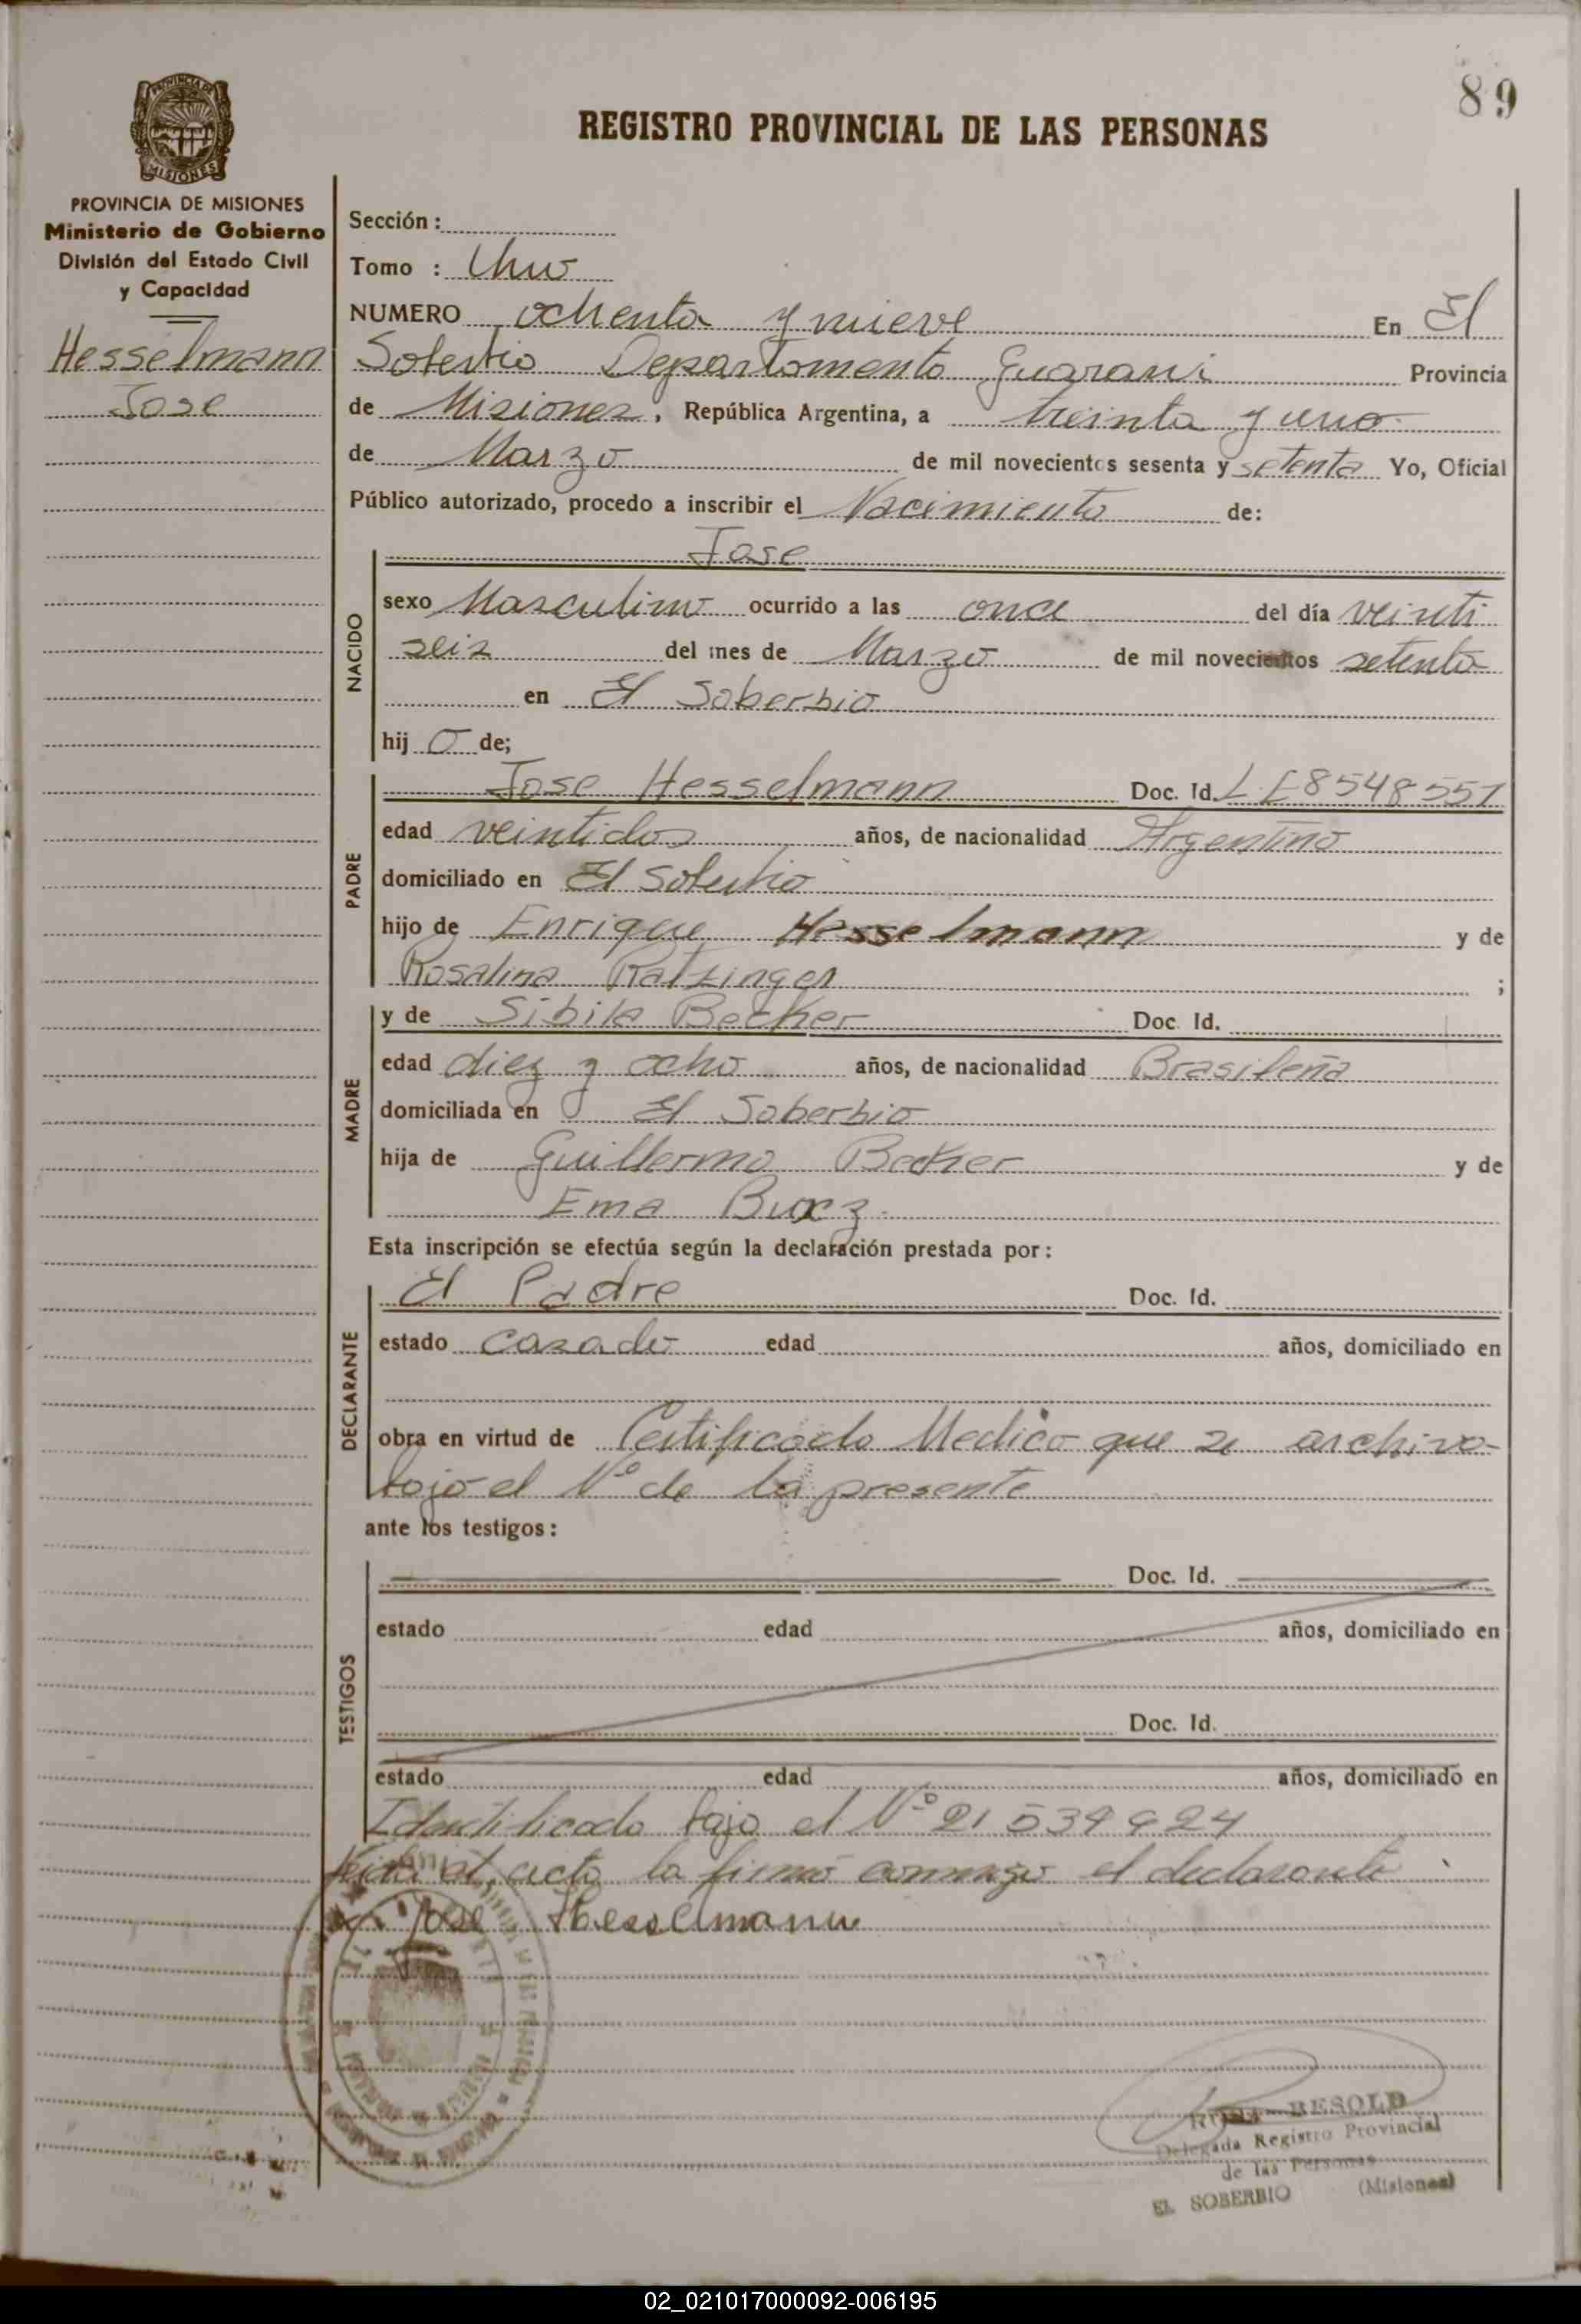 89
REGISTRO PROVINCIAL DE LAS PERSONAS
PROVINCIA DE MISIONES
Ministerio de Gobierno
División del Estado Civil
y Capacidad
Hesselmann
Jose
Sección :
Tomo : Uno
NUMERO ochenta y nueve En El
Soberbio Departamento Guarani Provincia
de Misiones, República Argentina, a treinta y uno
de Marzo de mil novecientos sesenta y setenta Yo, Oficial
Público autorizado, procedo a inscribir el Nacimiento de:
NACIDO
Jose
sexo Masculino ocurrido a las once del día veinti
seis del mes de Marzo de mil novecientos setenta
en El Soberbio
hij o de;
PADRE
Jose Hesselmann Doc. Id. L E 8548557
edad veintidos años, de nacionalidad Argentino
domiciliado en El Soberbio
hijo de Enrique Hesselmann y de
Rosalina Ratzinger ;
MADRE
y de Sibila Becker Doc. Id.
edad diez y ocho años, de nacionalidad Brasileña
domiciliada en El Soberbio
hija de Guillermo Becker y de
Ema
Esta inscripción se efectúa según la declaración prestada por :
DECLARANTE
El Padre Doc. Id.
estado casado edad años, domiciliado en
obra en virtud de Certificado Medico que se archiva
bajo el Nº de la presente
ante los testigos :
TESTIGOS
Doc. Id.
estado edad años, domiciliado en
Doc. Id.
estado edad años, domiciliado en
Identificado bajo el Nº 21 539 924
el acta la firmó conmigo el declarante
Jose Hesselmann
RESOLD
Delegada Registro Provincial
de las Personas
EL SOBERBIO (Misiones)
02_021017000092-006195